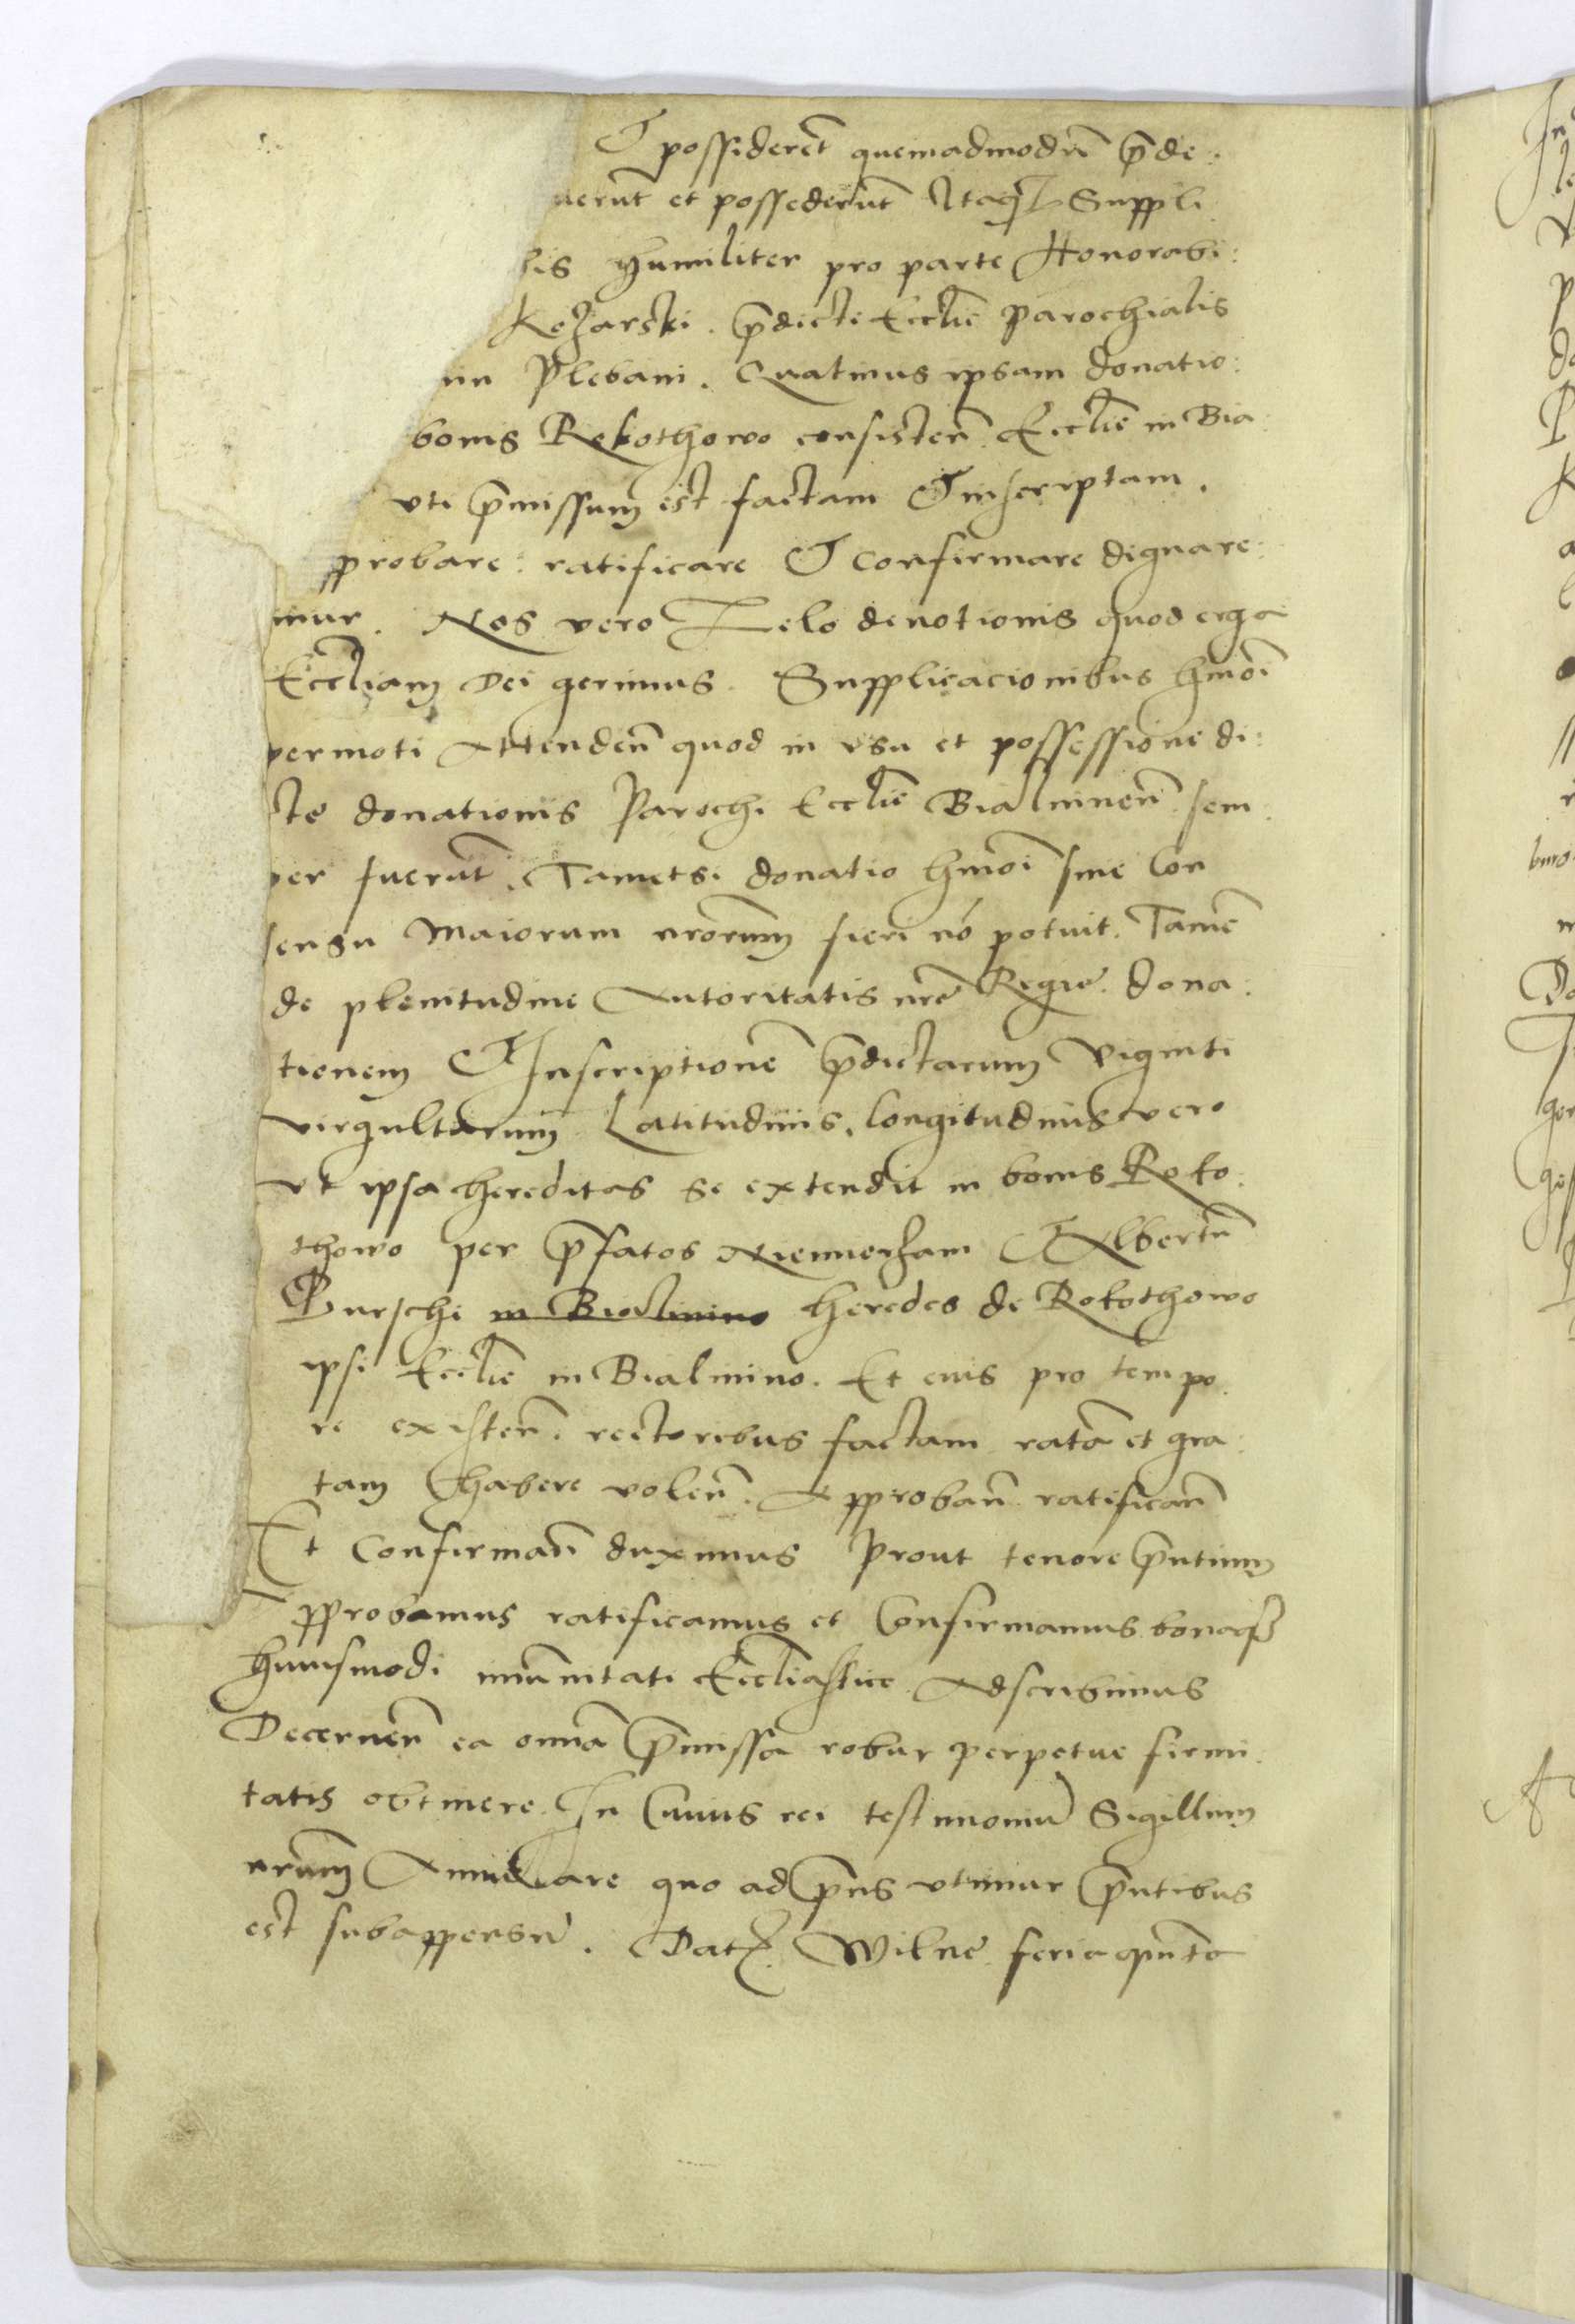 & possiderēt quemadmodū p̄de:
uerūt et possederūt Itaqz Suppli
bis humiliter pro parte Honorabi:
Kozarski. p̄dicte Eccl̄ie Parochialis
nn Plebani. Quatinus ipsam donatio:
bonis Rokothowo consisteñ. Eccl̄ie in Bia
vti p̄missum est factam & inscriptam.
pprobare: ratificare & Confirmare dignare:
mur. Nos vero Zelo deuotionis quod erga
Eccl̄iam Dei gerimus. Supplicacionibus hmōi
permoti Attendeñ quod in vsu et possessione di:
cte donationis Parochi Eccl̄ie Bialinineñ. sem
per fuerūt. Tametsi donatio hmōi sine Con
sensu Maiorum nr̄orum fieri nō potuit. Tamē
de plenitudine Autoritatis nr̄e Regie. dona:
tionem & Inscriptionē p̄dictarum viginti
virgultarum Latitudinis. longitudinis vero
vt ipsa hereditas se extendit in bonis Roko:
thowo per p̄fatos Niemierzam & Albertū
Burschi in Bialinino heredes de Rokothowo
ipsi Eccl̄ie in Bialinino. Et eius pro tempo
re existeñ. rectoribus factam ratā et gra:
tam habere voleñ. Approbañ ratificañ
Et Confirmañ duximus Prout tenore p̄ntium
Approbamus ratificamus et Confirmamus bonaqz
huiusmodi immūnitati Eccl̄iastice Adscribimus
Decerneñ ea omīa p̄missa robur perpetue firmi:
tatis obtinere. In Cuius rei testimoniū Sigillum
nr̄um Annulare quo ad p̄ns vtimur p̄ntibus
est subappensū. Datz. Wilne feria quinta